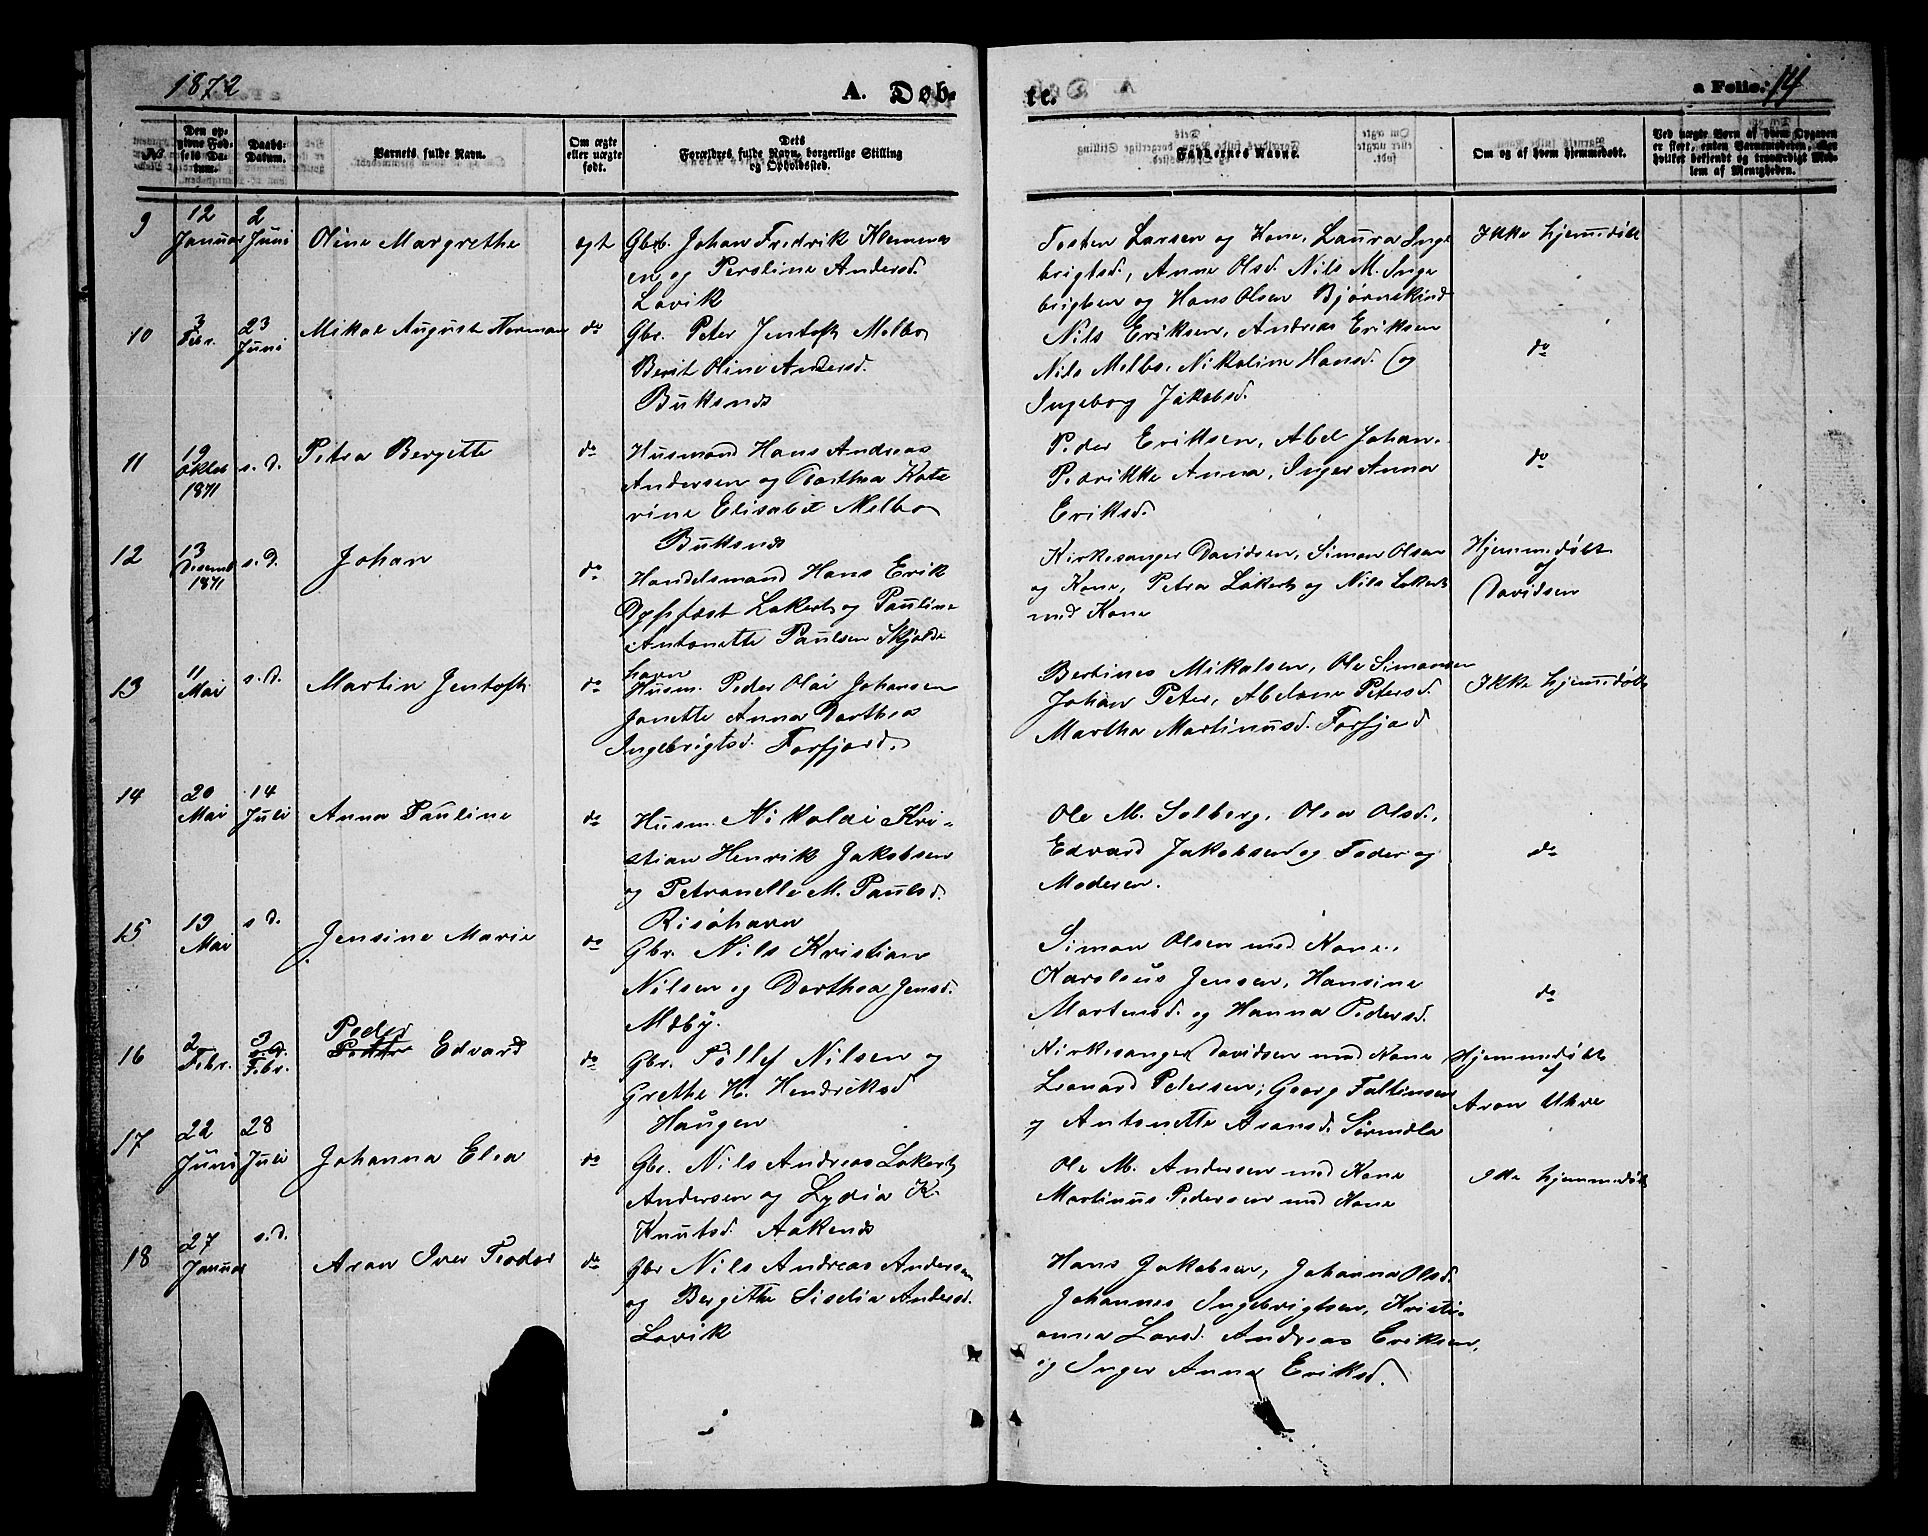 1872
A. Døb-
te.
a Folio. 14
No
Den op-
givne Fød-
sels Da-
tum.
Daabs-
Datum.
Barnets fulde Navn.
Om ægte
eller uægte
født.
Dets
Forældres fulde Navn, borgerlige Stilling
og Opholdssted.
Faddernes Navne.
Om og af hvem hjemmedøbt.
Ved uægte Born af hvem Opgaven
er skeet, enten Barnemoderen, eller
hvilket bekjendt og troværdigt Med-
lem af Menigheden.
9
12
Januar
2
Juni
Oline Margrethe
egt
Gbr. Johan Fredrik Klemmes
en og Persline Andersd.
Lovik
Tosten Larsen og Kone, Laura Inge
brigtsd, Anne Olsd. Nils M. Inge
brigtsen og Hans Olsen Bjørnskind
Ikke hjemmedøbt
10
3
Febr.
23
Juni
Mikal August Norman
do
Gbr. Peter Jentoft Melbo
Berit Oline Andersd.
Buksnes
Nils Eriksen, Andreas Eriksen
Nils Melbo, Nikoline Hansd. og
Ingeborg Jakobsd.
do
11
19
Oktob
1871
s. d.
Petra Bergitte
do
Husmand Hans Andreas
Andersen og Dorthea Kate
rine Elisabet Melbo
Buksnes
Peder Eriksen, Abel Johan.
Pedrikke Anna, Inger Anna
Eriksd.
do
12
13
Desemb
1871
s. d.
Johan
do
Handelsmand Hans Erik
Lokert og Pauline
Antonette Paulsen Skjolde
havn
Kirkesanger Davidsen, Simon Olsen
og Kone, Petra Lokert og Nils Lokert
med Kone
Hjemmedøbt
af
Davidsen
13
11
Mai
s. d.
Martin Jentoft
do
Husm. Peder Olai Johansen
Janette Anna Dorthea
Ingebrigtsd. Forfjord.
Bertines Mikalsen, Ole Simonsen
Johan Peter, Abelone Petersd.
Martha Martinusd. Forfjord
Ikke hjemmedøbt
14
20
Mai
14
Juli
Anna Pauline
do
Husm. Nikolai Kri-
stian Henrik Jakobsen
og Petronelle M. Paulsd.
Risøhavn
Ole M. Solberg, Olea Olsd.,
Edvard Jakobsen og Fader og
Moderen.
do
15
19
Mai
s. d.
Jensine Marie
do
Gbr. Nils Kristian
Nilsen og Dorthea Jensd.
Aaby.
Simon Olsen med Kone,
Karoleus Jensen, Hansine
Martensd. og Hanna Pedersd.
do
16
2
Febr.
3
Febr.
Peder
Edvard
do
Gbr. Tollef Nilsen og
Grethe H. Hendriksd
Haugen
Kirkesanger Davidsen med Kone
Leonard Pedersen, Georg Faltinsen
og Antonette Aronsd. Sørmela
Hjemmedøbt
af
Aron Uhre
17
22
Juni
28
Juli
Johanna Elea
do
Gbr. Nils Andreas Lokert
Andersen og Lydia K.
Knutsd. Aaknes
Ole M. Andersen med Kone
Martinus Pedersen med Kone
Ikke hjemmedøbt
18
27
Januar
s. d.
Aron Iver Teodor
do
Gbr Nils Andreas Andersen
og Bergithe Siselia Andersd.
Lovik
Hans Jakobsen, Johanna Olsd.
Johannes Ingebrigtsen, Kristi-
anna Larsd. Andreas Eriksen,
og Inger Anna Eriksd.